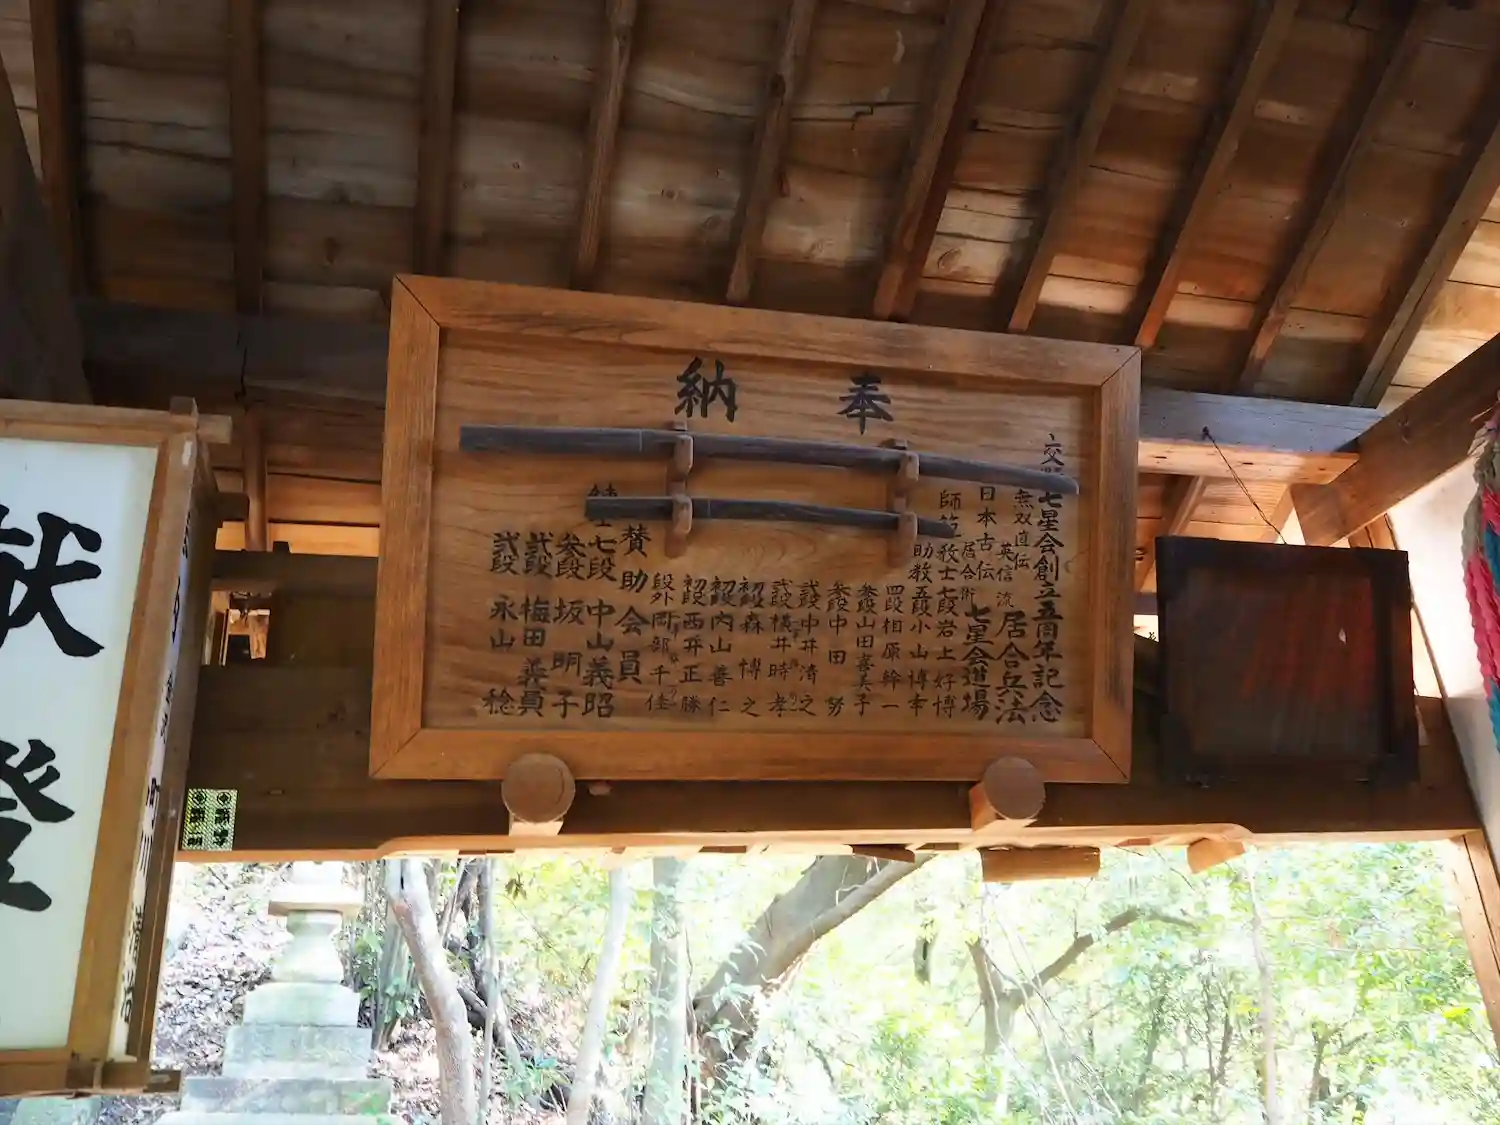 奉納
交野七星会創立五周年記念
無双直伝英信流居合兵法
日本古伝居合術七星会道場
師範教士七段岩上好博
助教五段小山博幸
四段相原幹一
参段山田喜美子
参段中田努
弐段中井清之
弐段横井時孝
初段森博之
初段内山善仁
初段西井正勝
段外岡部千佳
賛助会員
七段中山義昭
参段坂明子
弐段梅田義員
弐段永山稔
献燈